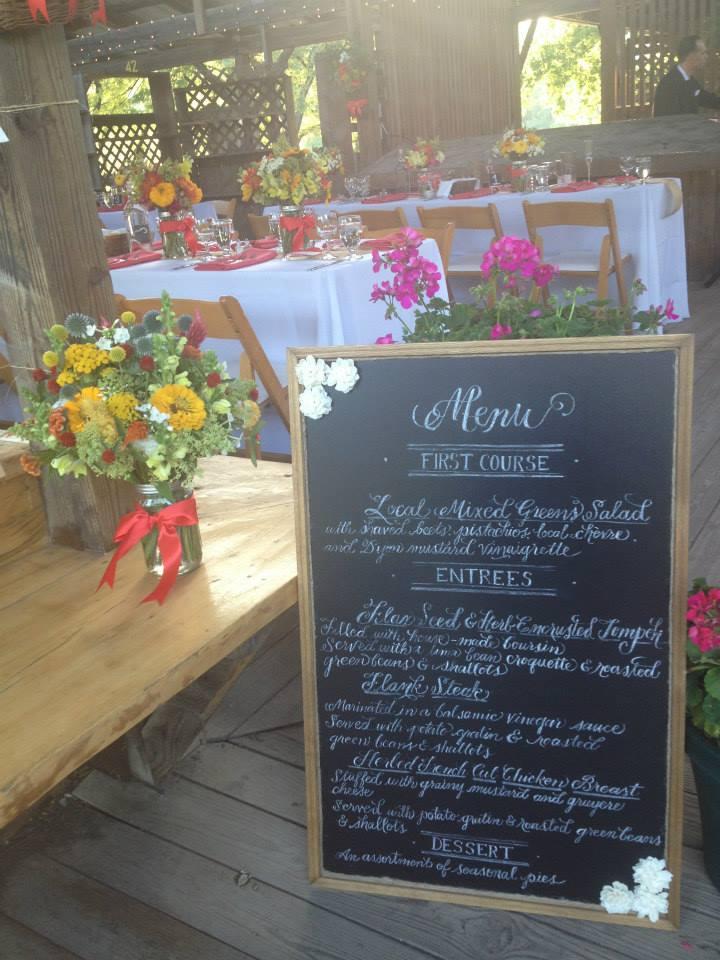 42
Menu
FIRST COURSE
Local Mixed Greens Salad
with shaved beets, pistachios, local chevre,
and Dijon mustard vinaigrette
ENTREES
Flax Seed & Herb Encrusted Tempeh
filled with house-made boursin
Served with a lima bean croquette & roasted
green beans & shallots
Flank Steak
Marinated in a balsamic vinegar sauce
Served with potato gratin & roasted
green beans & shallots
Herbed French Cut Chicken Breast
Stuffed with grainy mustard and gruyere
cheese
Served with potato gratin & roasted green beans
& shallots
DESSERT
An assortment of seasonal pies